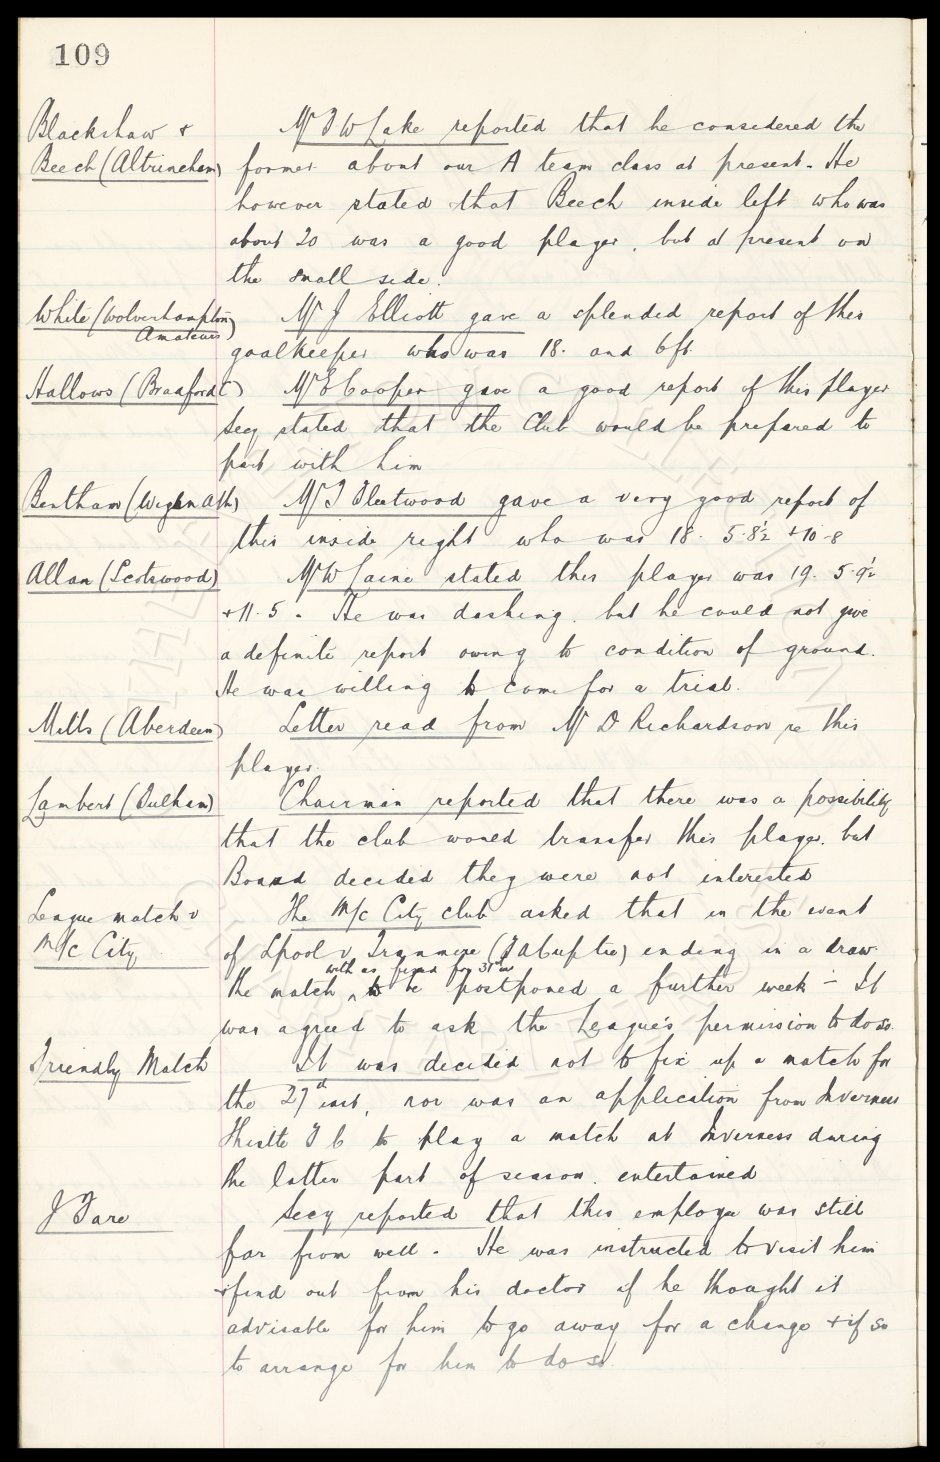 109
Blackshaw &
Beech (Altrincham)
Mr T W Lake reported that he considered the
former about our A team class at present. He
however stated that Beech inside left who was
about 20 was a good player, but at present on
the small side.
White (Wolverhampton
Amateurs)
Mr J Elliott gave a splended report of this
goalkeeper who was 18. and 6ft
Hallows (Bradford C)
Mr E Cooper gave a good report of this player
Secy stated that the Club would be prepared to
part with him
Bentham (Wigan Ath)
Mr T Fleetwood gave a very good report of
this inside right who was 18. 5.8½ & 10.8
Allan (Scotswood)
Mr W Caine stated this player was 19. 5.9½
& 11.5. He was dashing, but he could not give
a definite report owing to condition of ground.
He was willing to come for a trial.
Mills (Aberdeen)
Letter read from Mr D Richardson re this
player.
Lambert (Fulham)
Chairman reported that there was a possibility
that the club would transfer this player, but
Board decided they were not interested
League match v
M/c City
The M/c City club asked that in the event
of Lpool v Tranmere (FA Cup tie) ending in a draw
with as fixed for 31st
the match to be postponed a further week – It
was agreed to ask the League's permission to do so.
Friendly Match
It was decided not to fix up a match for
the 27th inst, nor was an application from Inverness
Thistle F C to play a match at Inverness during
the latter part of season, entertained
J Fare
Secy reported that this employee was still
far from well. He was instructed to visit him
& find out from his doctor if he thought it
advisable for him to go away for a change & if so
to arrange for him to do so